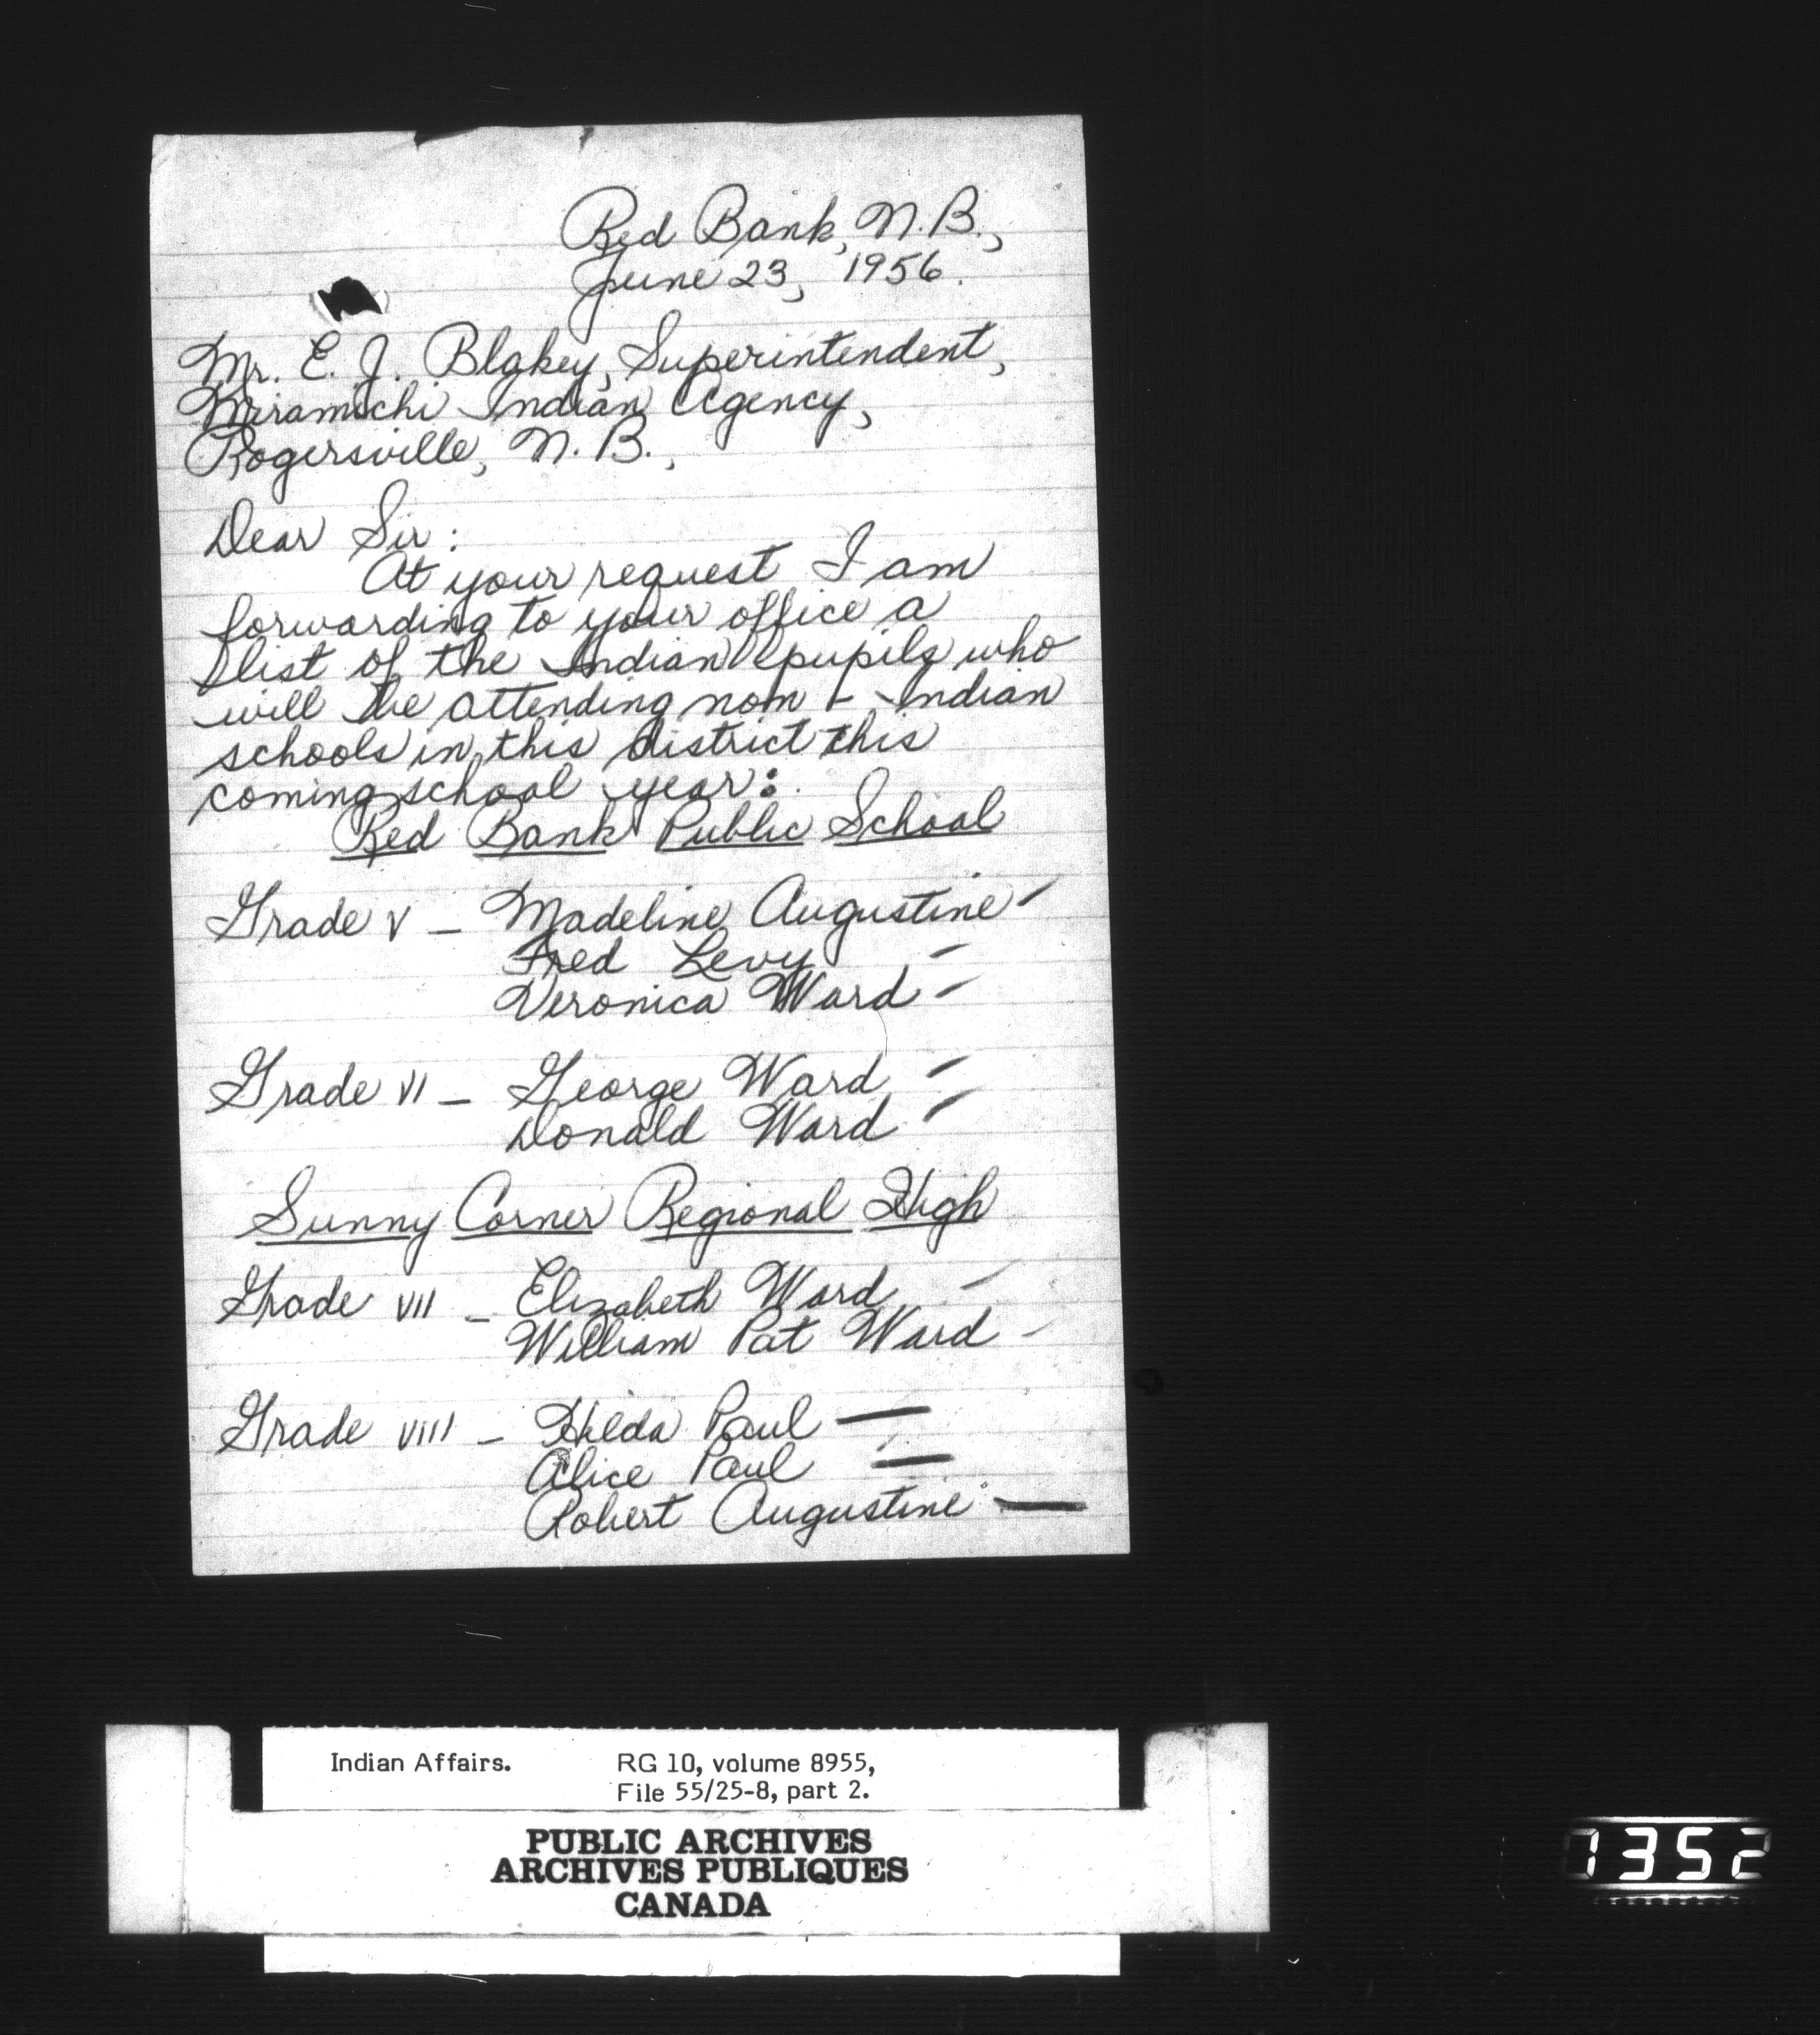 Red Bank, N.B.,
June 23, 1956.
Mr. E. J. Blakey, Superintendent,
Miramichi Indian Agency,
Rogersville, N.B.,
Dear Sir:
At your request I am
forwarding to your office a
list of the Indian pupils who
will be attending non-Indian
schools in this district this
coming school year:
Red Bank Public School
Grade V - Madeline Augustine
Fred Levy
Veronica Ward
Grade VI - George Ward
Donald Ward
Sunny Corner Regional High
Grade VII - Elizabeth Ward
William Pat Ward
Grade VIII - Hilda Paul
Alice Paul
Robert Augustine
Indian Affairs. RG 10, volume 8955,
File 55/25-8, part 2.
PUBLIC ARCHIVES
ARCHIVES PUBLIQUES
CANADA
1352